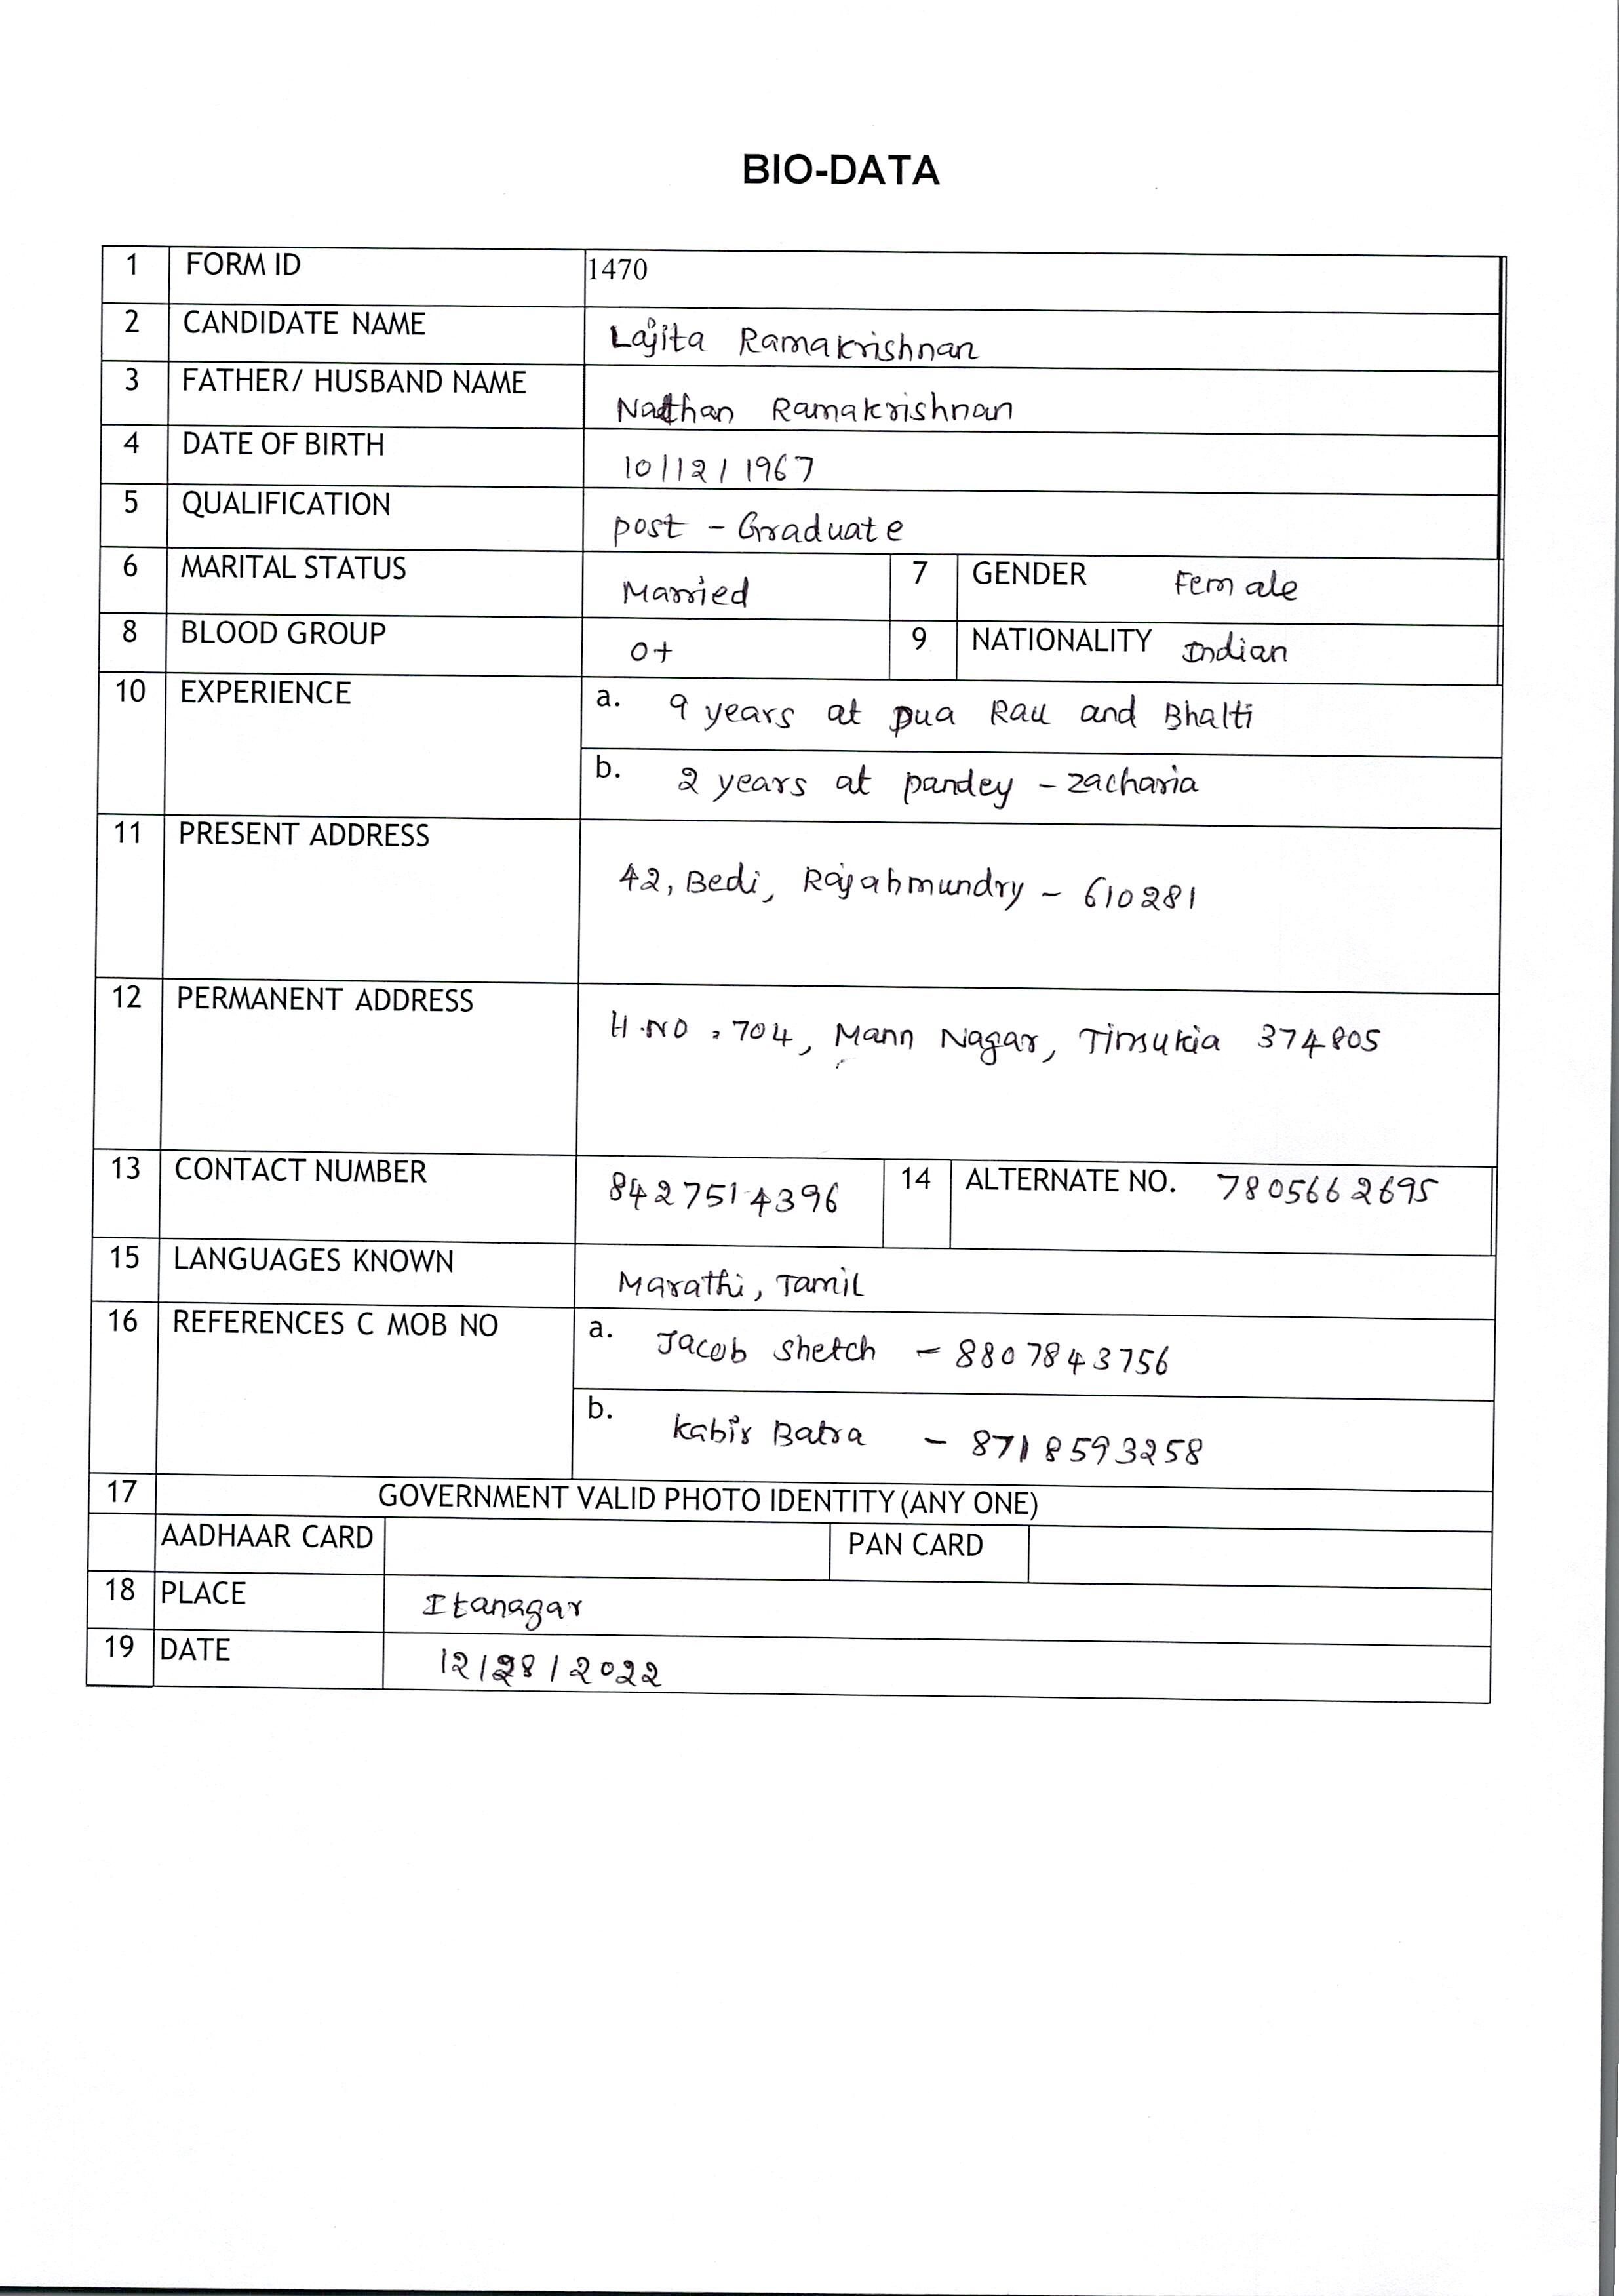 BIO-DATA
1 FORM ID 1470
2 CANDIDATE NAME Lajita Ramakrishnan
3 FATHER/ HUSBAND NAME Nathan Ramakrishnan
4 DATE OF BIRTH 10/12/1967
5 QUALIFICATION post - Graduate
6 MARITAL STATUS Married 7 GENDER Female
8 BLOOD GROUP O+ 9 NATIONALITY Indian
10 EXPERIENCE a. 9 years at Dua Rau and Bhalti
b. 2 years at pandey - zacharia
11 PRESENT ADDRESS
42, Bedi, Rajahmundry - 610281
12 PERMANENT ADDRESS
H.NO. 704, Mann Nagar, Tinsukia 374805
13 CONTACT NUMBER 8427514396 14 ALTERNATE NO. 7805662695
15 LANGUAGES KNOWN Marathi, Tamil
16 REFERENCES C MOB NO a. Jacob Shetch - 8807843756
b. Kabir Batra - 8718593258
17 GOVERNMENT VALID PHOTO IDENTITY (ANY ONE)
AADHAAR CARD PAN CARD
18 PLACE Itanagar
19 DATE 12/28/2022